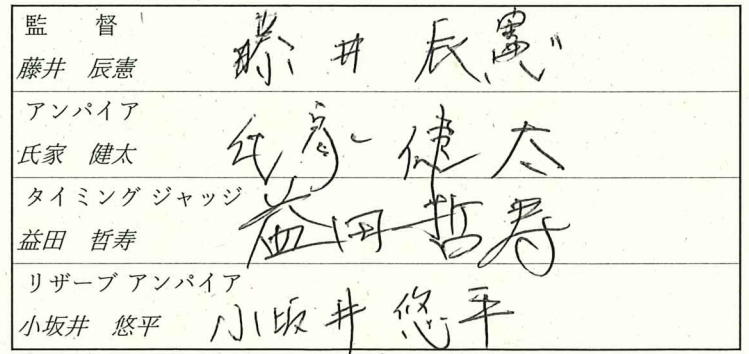 監　　督
藤井　辰憲　藤井 辰憲
アンパイア
氏家　健太　氏家 健太
タイミング ジャッジ
益田　哲寿　益田 哲寿
リザーブ アンパイア
小坂井　悠平　小坂井 悠平